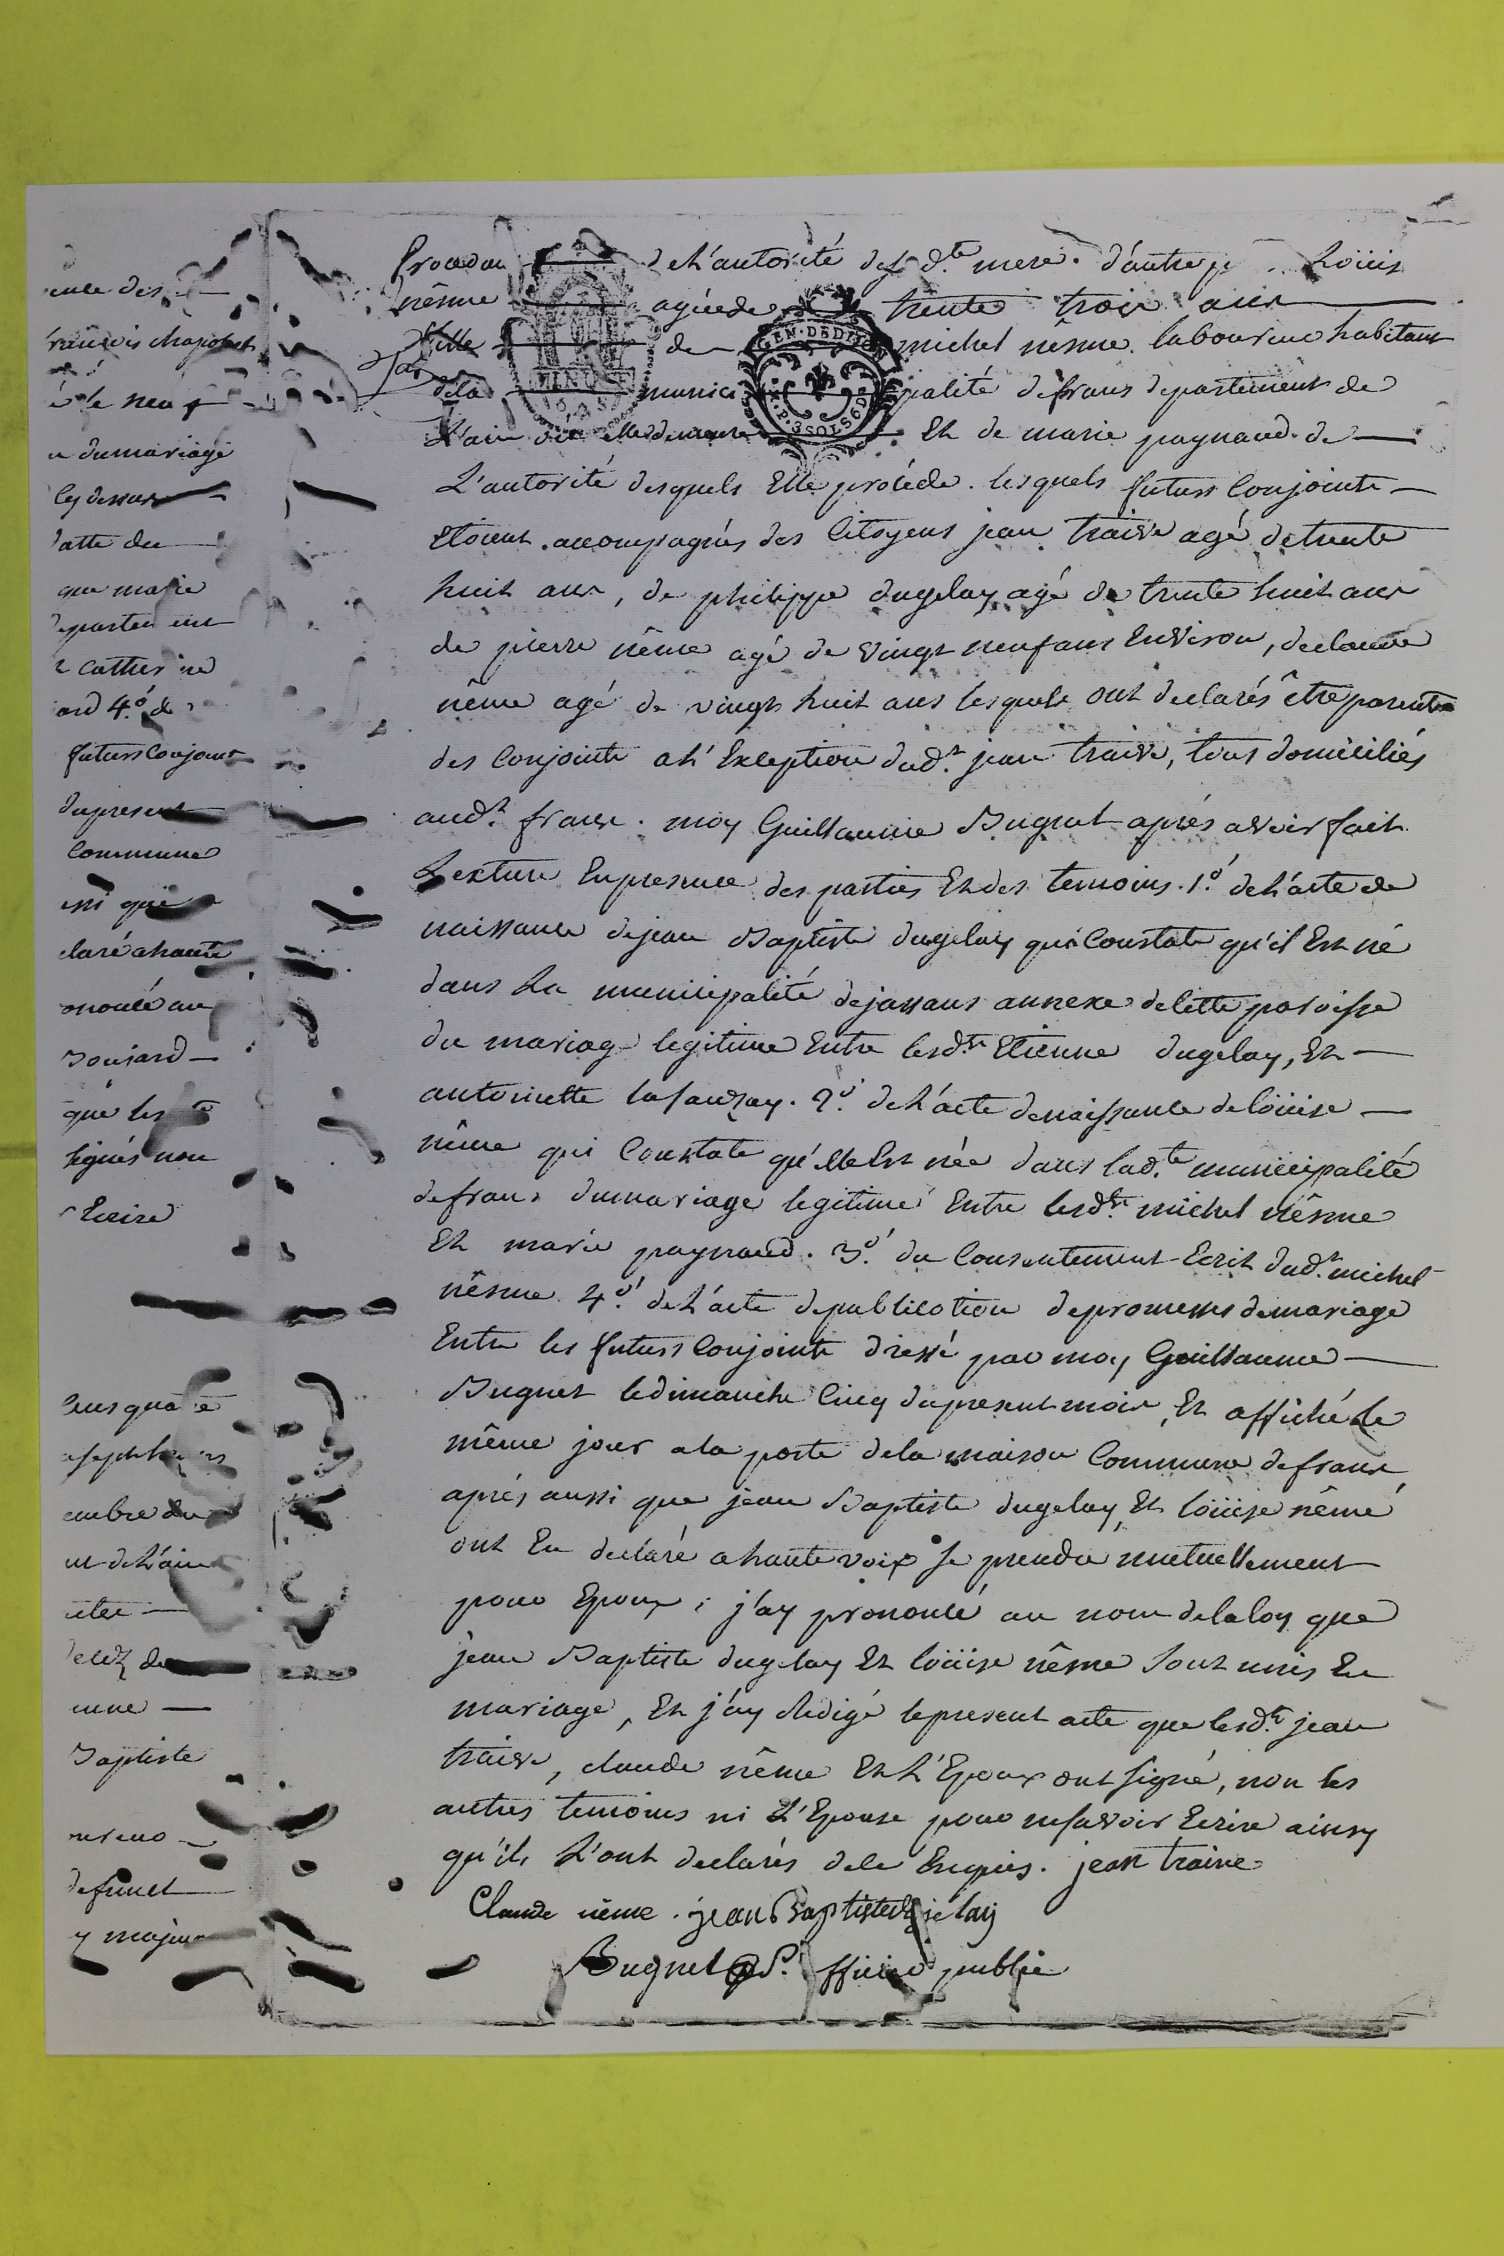 ence des
françois chapolet
é le neuf
du mariage
cy dessus
datte du
que marie
departement
catherine
ard 4.º de
futurs conjoint
du present
commune
insi que
claré a haute
ononcé au
Bouiard
que les
signés non
Ecrire
embre du
nt de L'ain
Baptiste
defunct
y majeur
procedant de L'autorité de sad.te mere. d'autre p Loüise
nême agée de trente trois ans
fille de michel nême laboureur habitant
de la municipalité de frans departement de
L'ain où elle demeure Et de marie paynaud. de
L'autorité desquels Elle procéde. lesquels futurs Conjoints
etoient accompagnés des Citoyens jean traive agé de trente
huit ans, de philippe dugelay agé de trente huit ans
de pierre nême agé de vingt neuf ans Environ, de claude
nême agé de vingt huit ans lesquels ont declarés être parents
des Conjoints a L'Exception dud.t jean traive, tous domiciliés
aud.t frans. moy Guillaume Bugnet aprés avoir fait
Lecture En presence des parties Et des temoins. 1.º de L'acte de
naissance de jean Baptiste dugelay qui Constate qu'il Est né
dans La municipalité de jassans annexe de cette paroisse
du mariage legitime Entre lesd.ts Etienne dugelay, Et
antoinette lafanzay. 2.º de L'acte de naissance de loüise
nême qui Constate qu'elle Est née dans lad.te municipalité
de frans du mariage legitime Entre lesd.ts michel nême
Et marie paynaud. 3.º du Consentement Ecrit dud.t michel
nême 4.º de L'acte de publication de promesses de mariage
Entre les futurs Conjoints dressé par moy Guillaume
Bugnet le dimanche Cinq du present mois, Et affiché le
même jour a la porte de la maison Commune de frans
aprés aussi que jean Baptiste dugelay Et loüise nême
ont Eu declaré a haute voix se prendre mutuellement
pour Epoux; j'ay prononcé au nom de la loy que
jean Baptiste dugelay Et loüise nême sont unis En
mariage, Et j'ay Redigé le present acte que lesd.ts jean
traive, claude nême Et L'Epoux ont signé, non les
autres temoins ni L'Epouse pour ne savoir Ecrire ainsy
qu'ils L'ont declarés de ce Enquis. jean traive
Claude nême. jean Baptiste dugelay
Bugnet officier public